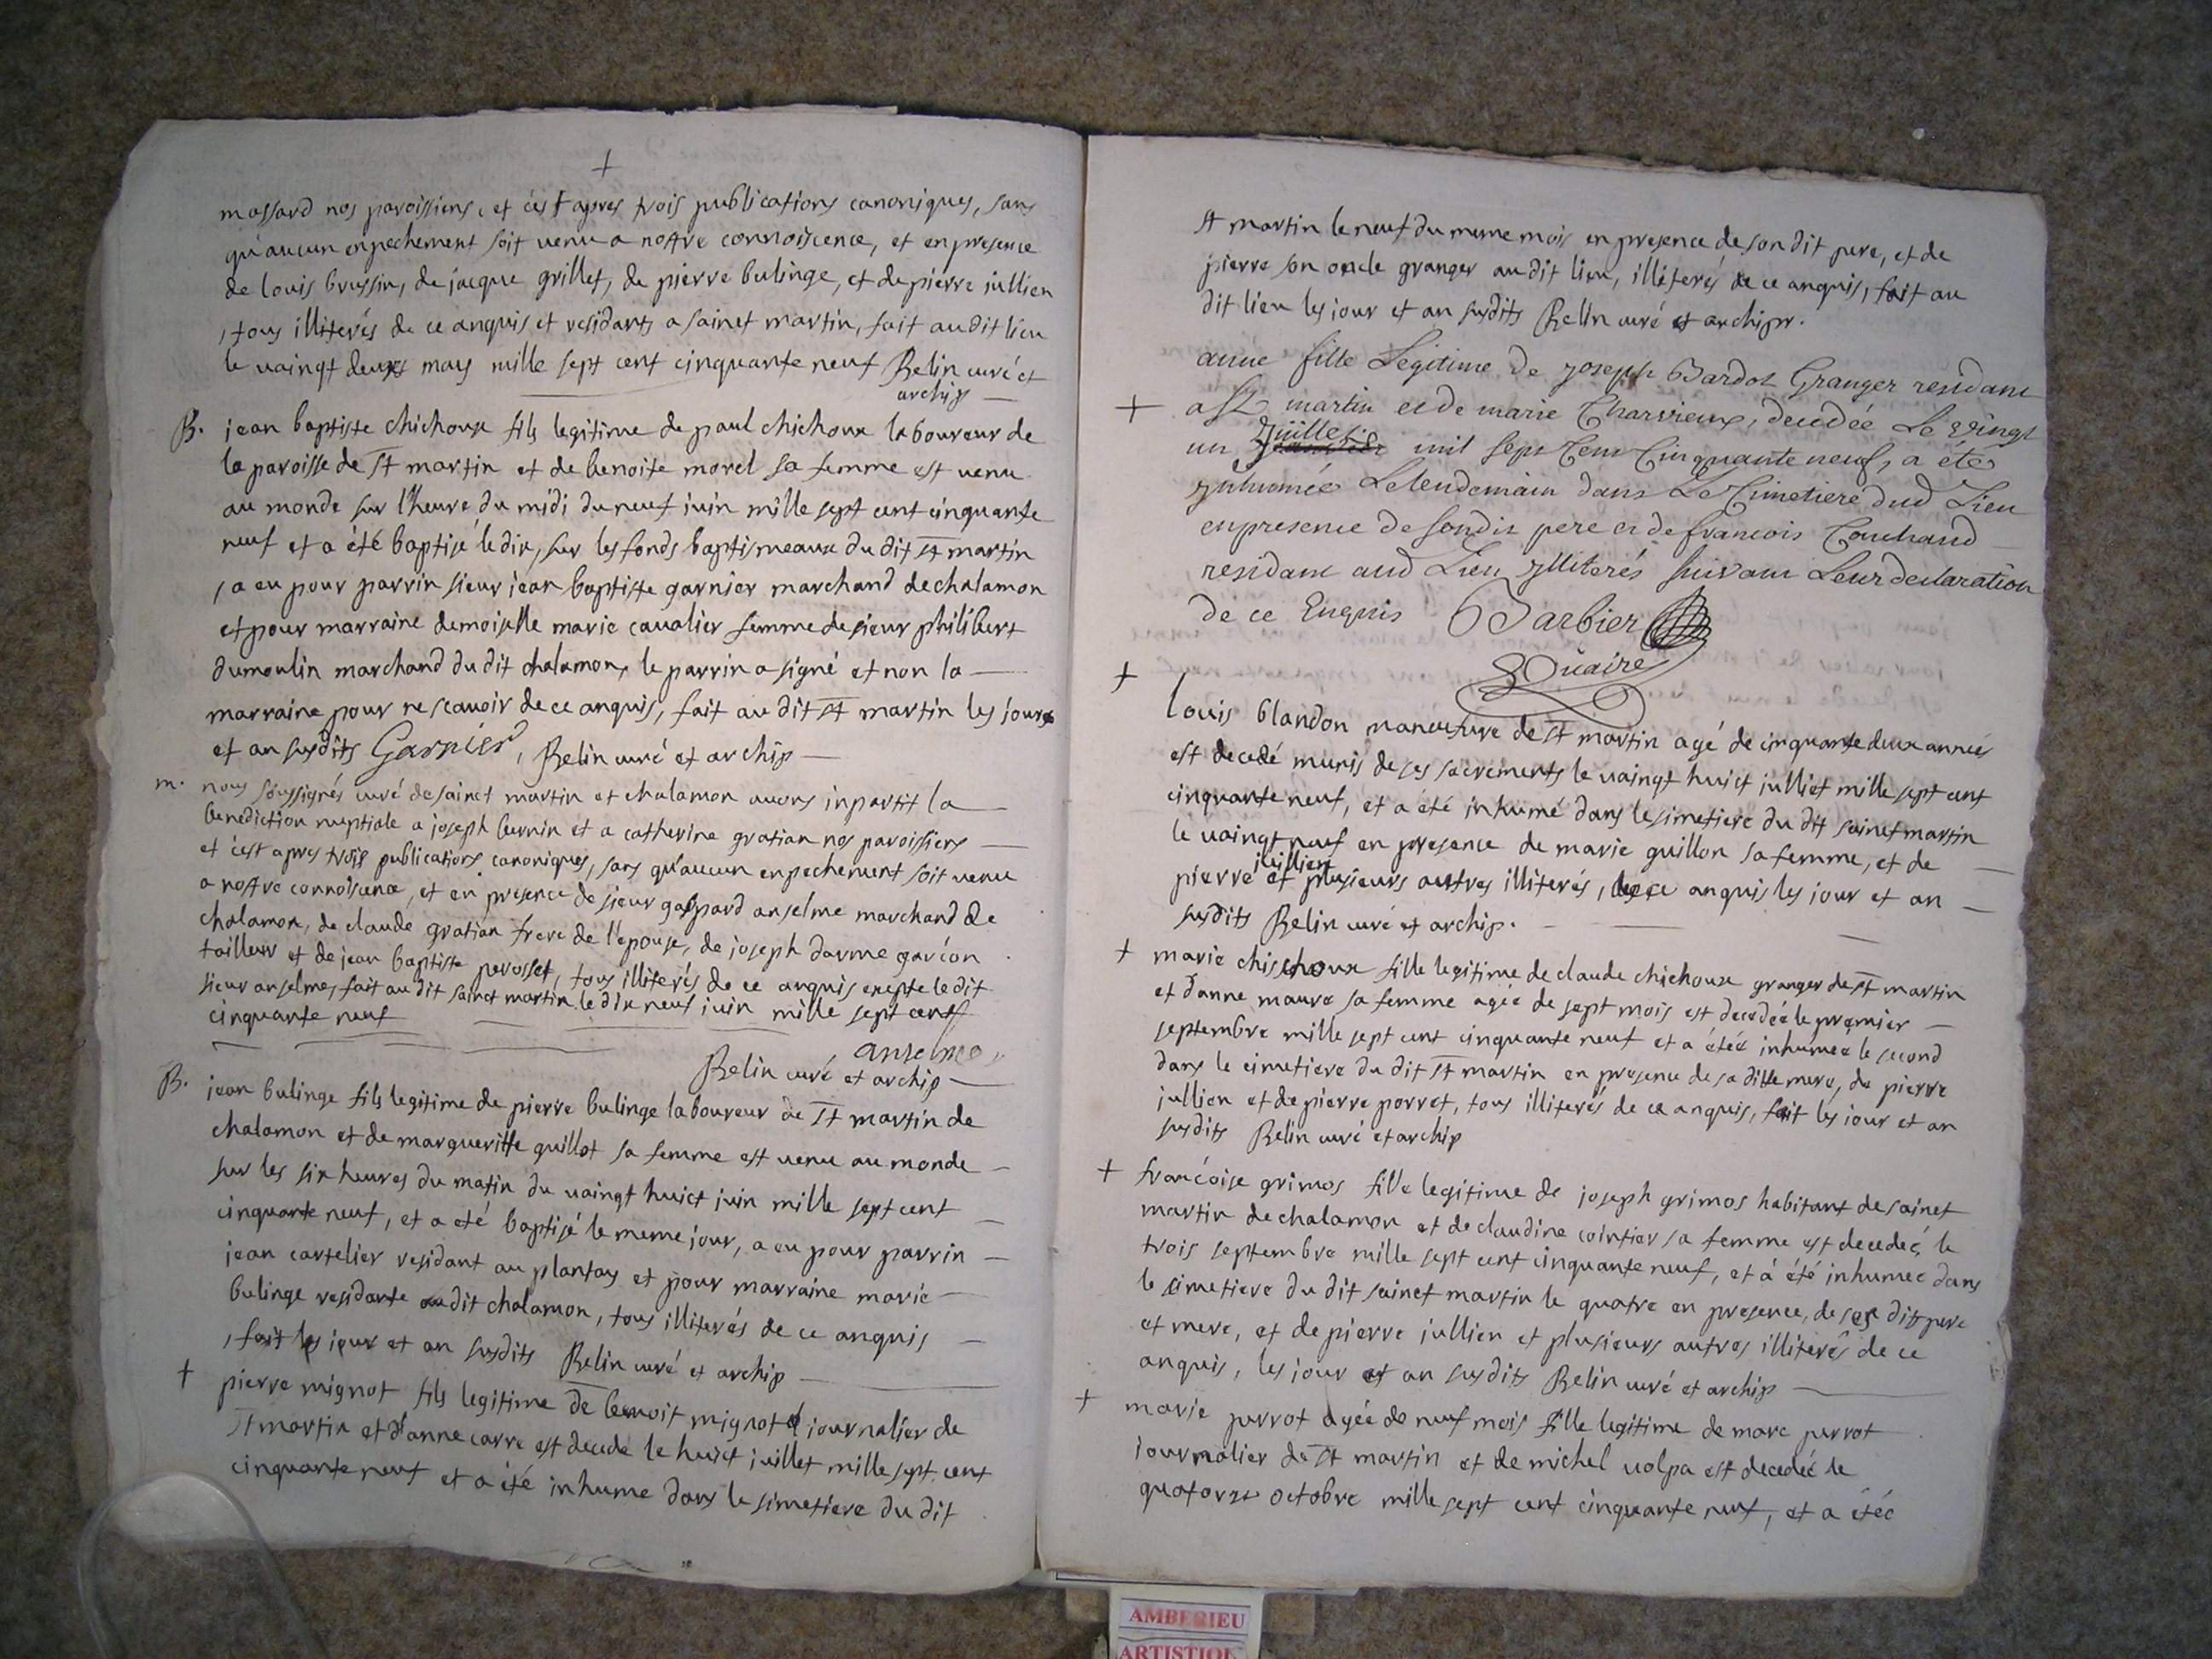 +
massard nos paroissiens, et c'est apres trois publications canoniques, sans
qu'aucun enpechement soit venu a nostre connoiscence, et en presence
de louis brussin, de jacque grillet, de pierre bulinge, et de pierre jullien
, tous illiterés de ce anquis et residants a sainct martin, fait au dit lieu
le vaingt deux may mille sept cent cinquante neuf Belin curé et
archip
B. jean baptiste chichoux fils legitime de paul chichoux laboureur de
la paroisse de st martin et de benoite morel sa femme est venu
au monde sur l'heure du midi du neuf juin mille sept cent cinquante
neuf et a été baptisé le dix, sur les fonds baptismeaux du dit st martin
, a eu pour parrin sieur jean baptiste garnier marchand de chalamon
et pour marraine demoiselle marie cavalier femme de sieur philibert
dumoulin marchand du dit chalamon, le parrin a signé et non la
marraine pour ne scavoir de ce anquis, fait au dit st martin les jours
et an susdits Garnier, Belin curé et archip
m. nous soussignés curé de sainct martin et chalamon avons inpartit la
benediction nuptiale a joseph bernin et a catherine gratian nos paroissiens
et c'est apres trois publications canoniques, sans qu'aucun enpechement soit venu
a nostre connoisence, et en presence de sieur gaspard anselme marchand de
chalamon, de claude gratian frere de l'epouse, de joseph darme garcon
tailleur et de jean baptiste perosset, tous illiterés de ce anquis exepte le dit
sieur anselme, fait au dit sainct martin le dix neuf juin mille sept cent
cinquante neuf
anselme
Belin curé et archip
B. jean bulinge fils legitime de pierre bulinge laboureur de st martin de
chalamon et de margueritte guillot sa femme est venu au monde
sur les six heures du matin du vaingt huict juin mille sept cent
cinquante neuf, et a eté baptisé le meme jour, a eu pour parrin
jean cartelier residant au plantay et pour marraine marie
bulinge residante au dit chalamon, tous illiterés de ce anquis
, fait les jour et an susdits Belin curé et archip
+ pierre mignot fils legitime de benoit mignot journalier de
st martin et d'anne carre est decede le huict juillet mille sept cent
cinquante neuf et a été inhume dans le simetiere du dit
st martin le neuf du meme mois en presence de son dit pere, et de
pierre son oncle granger au dit lieu, illiterés de ce anquis, fait au
dit lieu les jour et an susdits Belin curé et archipr.
anne fille Legitime de joseph Bardot Granger residant
+ a St martin et de marie Charvieux, decedée Le vingt
un Juillet mil sept Cent Cinquante neuf, a été
ynhumée Le lendemain dans Le Cimetiere dud Lieu
en presence de son dit pere et de francois Couchaud
residant aud Lieu yllitérés suivant Leur declaration
de ce Enquis Barbier
Vicaire
+ louis blandon maneuvre de st martin agé de cinquante deux année
est decedé munis de ses sacrements le vaingt huict julliet mille sept cent
cinquante neuf, et a été inhumé dans le simetiere du dit sainct martin
le vaingt neuf en presence de marie guillon sa femme, et de
pierre juillien et plusieurs autres illiterés, de ce anquis les jour et an
susdits Belin curé et archip.
+ marie chischoux fille legitime de claude chichoux granger de st martin
et d'anne maure sa femme agée de sept mois est decedée le premier
septembre mille sept cent cinquante neuf et a étée inhumée le second
dans le cimetiere du dit st martin en presence de sa ditte mere, de pierre
jullien et de pierre perret, tous illiterés de ce anquis, fait les jour et an
susdits Belin curé et archip
+ francoise grimos fille legitime de joseph grimos habitant de sainct
martin de chalamon et de claudine cointier sa femme est decedeé le
trois septembre mille sept cent cinquante neuf, et a été inhumee dans
le simetiere du dit sainct martin le quatre en presence, de ses dits pere
et mere, et de pierre jullien et plusieurs autres illiterés de ce
anquis, les jour et an susdits Belin curé et archip
+ marie perrot agée de neuf mois fille legitime de marc perrot
journalier de st martin et de michel volpa est decedeé le
quatorze octobre mille sept cent cinquante neuf, et a étée
AMBERIEU